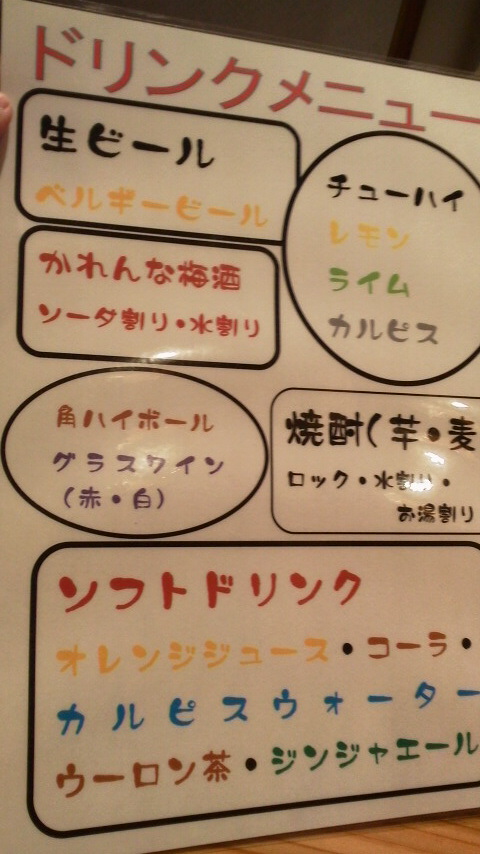 ドリンクメニュー
生ビール
ベルギービール
チューハイ
レモン
ライム
カルピス
かれんな梅酒
ソーダ割り・水割り
角ハイボール
グラスワイン
(赤・白)
焼酎(芋・麦
ロック・水割り・
お湯割り
ソフトドリンク
オレンジジュース・コーラ・
カルピスウォーター
ウーロン茶・ジンジャエール